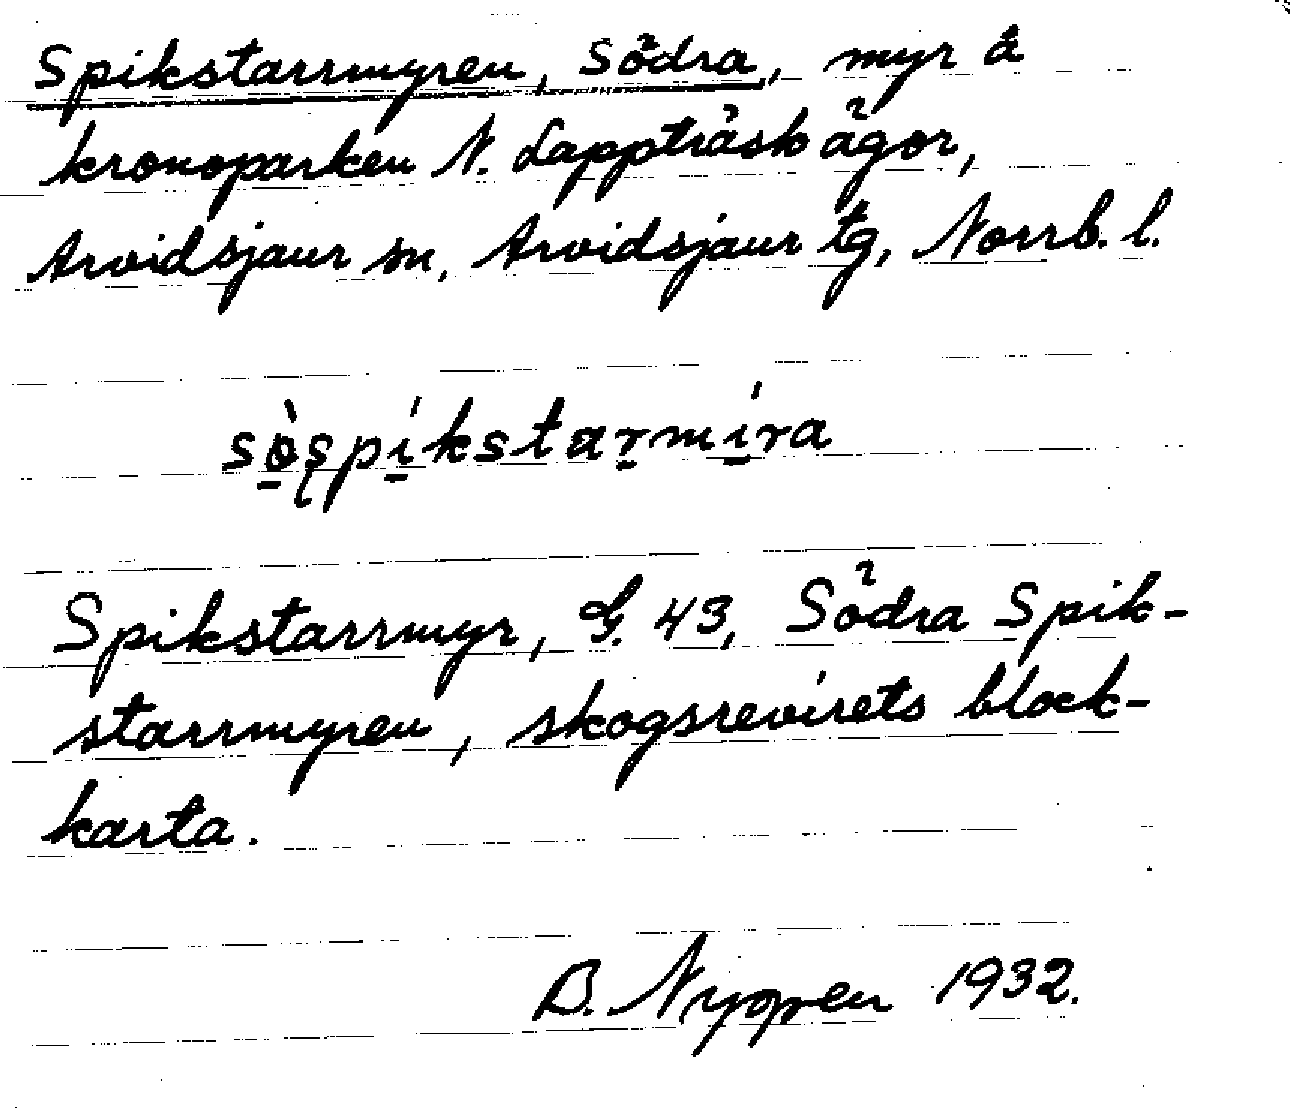 Spikstarrmyren, Södra, myr å
kronoparken N. Lappträsk ägor,
Arvidsjaur sn, Arvidsjaur tg, Norrb. l.
sò̱ʂpí̱kstar̠mí̱ra
Spikstarrmyr, G. 43, Södra Spik-
starrmyren, skogsrevirets block-
karta.
B. Nyopen 1932.